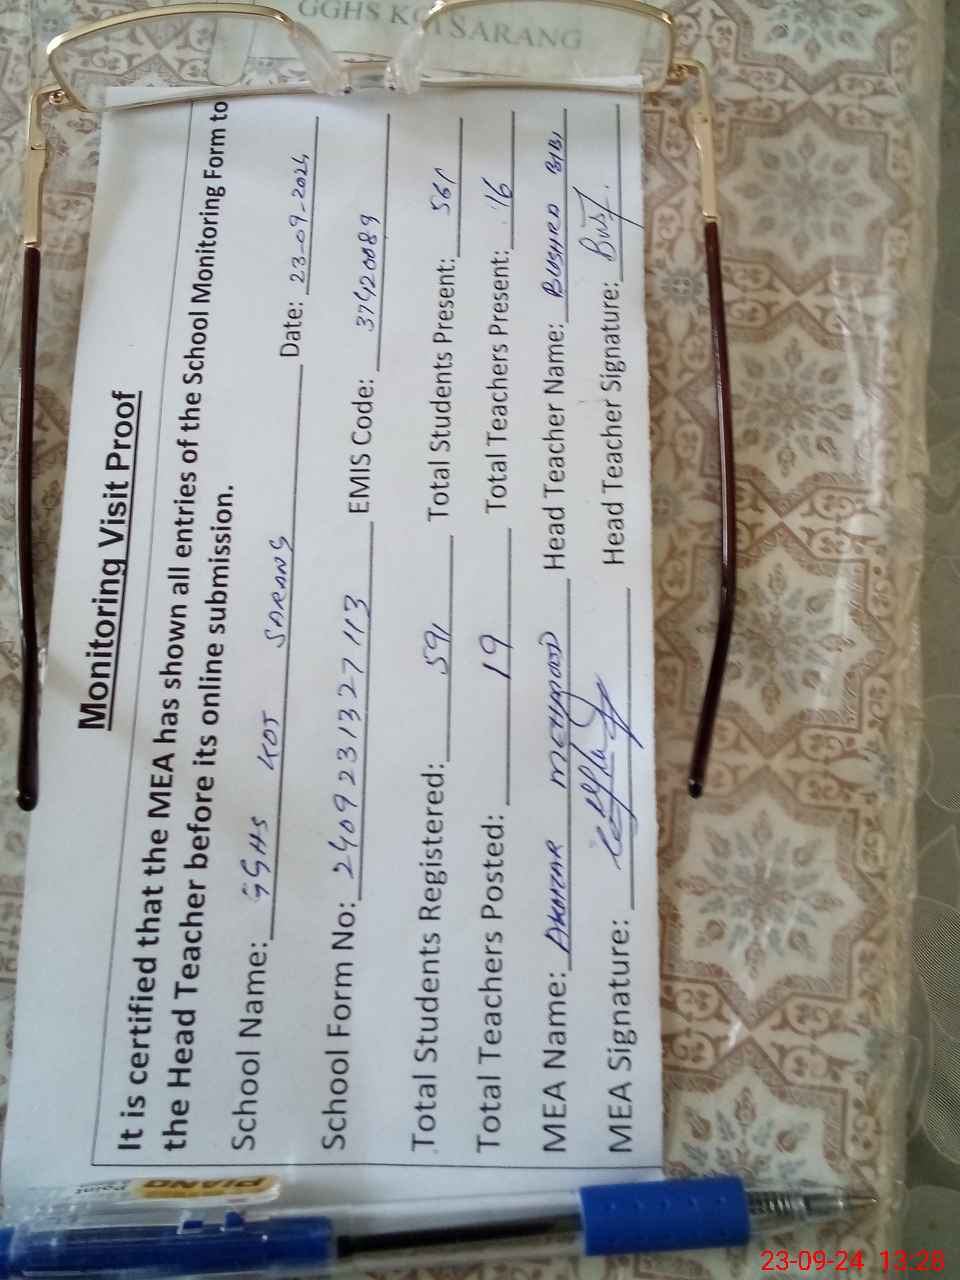 GGHS KOT SARANG
Monitoring Visit Proof
It is certified that the MEA has shown all entries of the School Monitoring Form to
the Head Teacher before its online submission.
School Name: GGHS KOT SARANG Date: 23-09-2024
School Form No: 2409231327113 EMIS Code: 37420089
Total Students Registered: 591 Total Students Present: 561
Total Teachers Posted: 19 Total Teachers Present: 16
MEA Name: MEHMOOD Head Teacher Name: BUSHRA BIBI
MEA Signature: Head Teacher Signature:
PIANO
Point
23-09-24 13:28